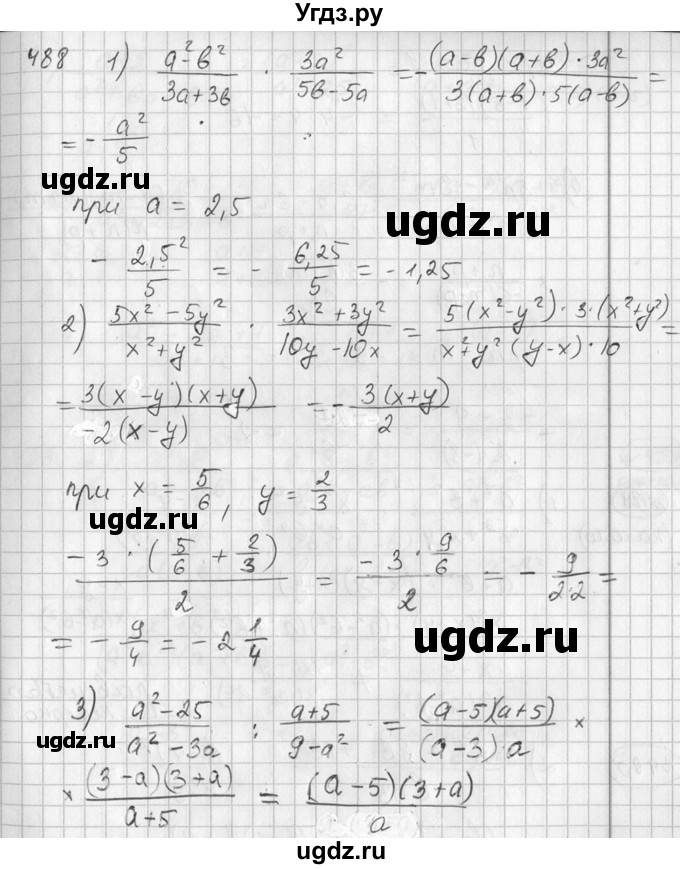 Угдз.ру
488 1) (a² - b²)/(3a + 3b) · 3a²/(5b - 5a) = -((a - b)(a + b) · 3a²)/(3(a + b) · 5(a - b)) =
= - a²/5
ugdz.ru
при a = 2,5
ugdz.ru
- 2,5²/5 = - 6,25/5 = - 1,25
2) (5x² - 5y²)/(x² + y²) · (3x² + 3y²)/(10y - 10x) = (5(x² - y²) · 3 · (x² + y²))/(x² + y² (y - x) · 10) =
= (3(x - y)(x + y))/(-2(x - y)) = - (3(x + y))/2
при x = 5/6, y = 2/3
ugdz.ru
(-3 · (5/6 + 2/3))/2 = (-3 · 9/6)/2 = - 9/(2·2) =
= - 9/4 = - 2 1/4
ugdz.ru
3) (a² - 25)/(a² - 3a) : (a + 5)/(9 - a²) = ((a - 5)(a + 5))/((a - 3) · a) ×
ugdz.ru
× ((3 - a)(3 + a))/(a + 5) = ((a - 5)(3 + a))/a
ugdz.ru